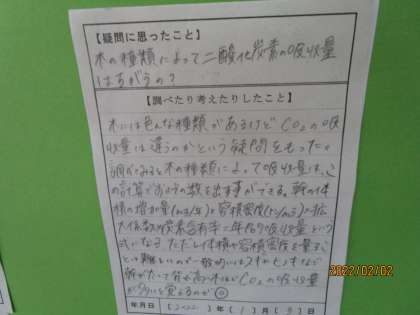 【疑問に思ったこと】
木の種類によって二酸化炭素の吸収量
はちがうの?
【調べたり考えたりしたこと】
木には色んな種類があるけどCO₂の吸
収量は違うのかという疑問をもった。
調べてみると木の種類によって吸収量は、
の計算でおよその数を出す事ができる。幹の体
積の増加量(m3/年)×容積密度(トン/m3)×拡
大係数×炭素含有率=年間の吸収量という
式になる ただし体積や容積密度を量る
とは難しいので一般的にはスギやヒノキなど
幹がたって背が高い木ほどCO₂の吸収量
が多いと言えるのが
年月日 (2022)年(1)月( )日
2022/02/02